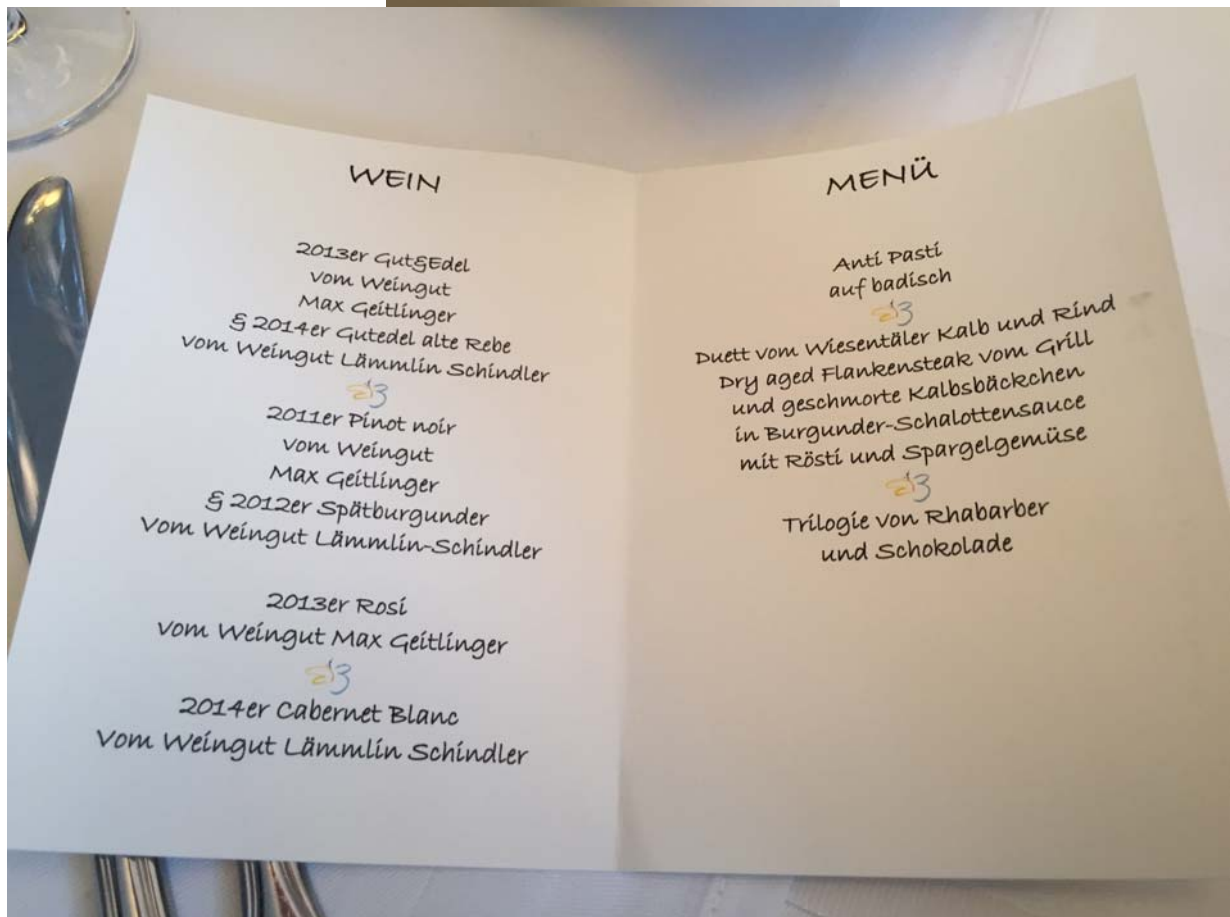 WEIN
2013er Gut&Edel
vom Weingut
Max Geitlinger
& 2014er Gutedel alte Rebe
vom Weingut Lämmlin Schindler
2011er Pinot noir
vom Weingut
Max Geitlinger
& 2012er Spätburgunder
Vom Weingut Lämmlin-Schindler
2013er Rosi
vom Weingut Max Geitlinger
2014er Cabernet Blanc
Vom Weingut Lämmlin Schindler
MENÜ
Anti Pasti
auf badisch
Duett vom Wiesentäler Kalb und Rind
Dry aged Flankensteak vom Grill
und geschmorte Kalbsbäckchen
in Burgunder-Schalottensauce
mit Rösti und Spargelgemüse
Trilogie von Rhabarber
und Schokolade